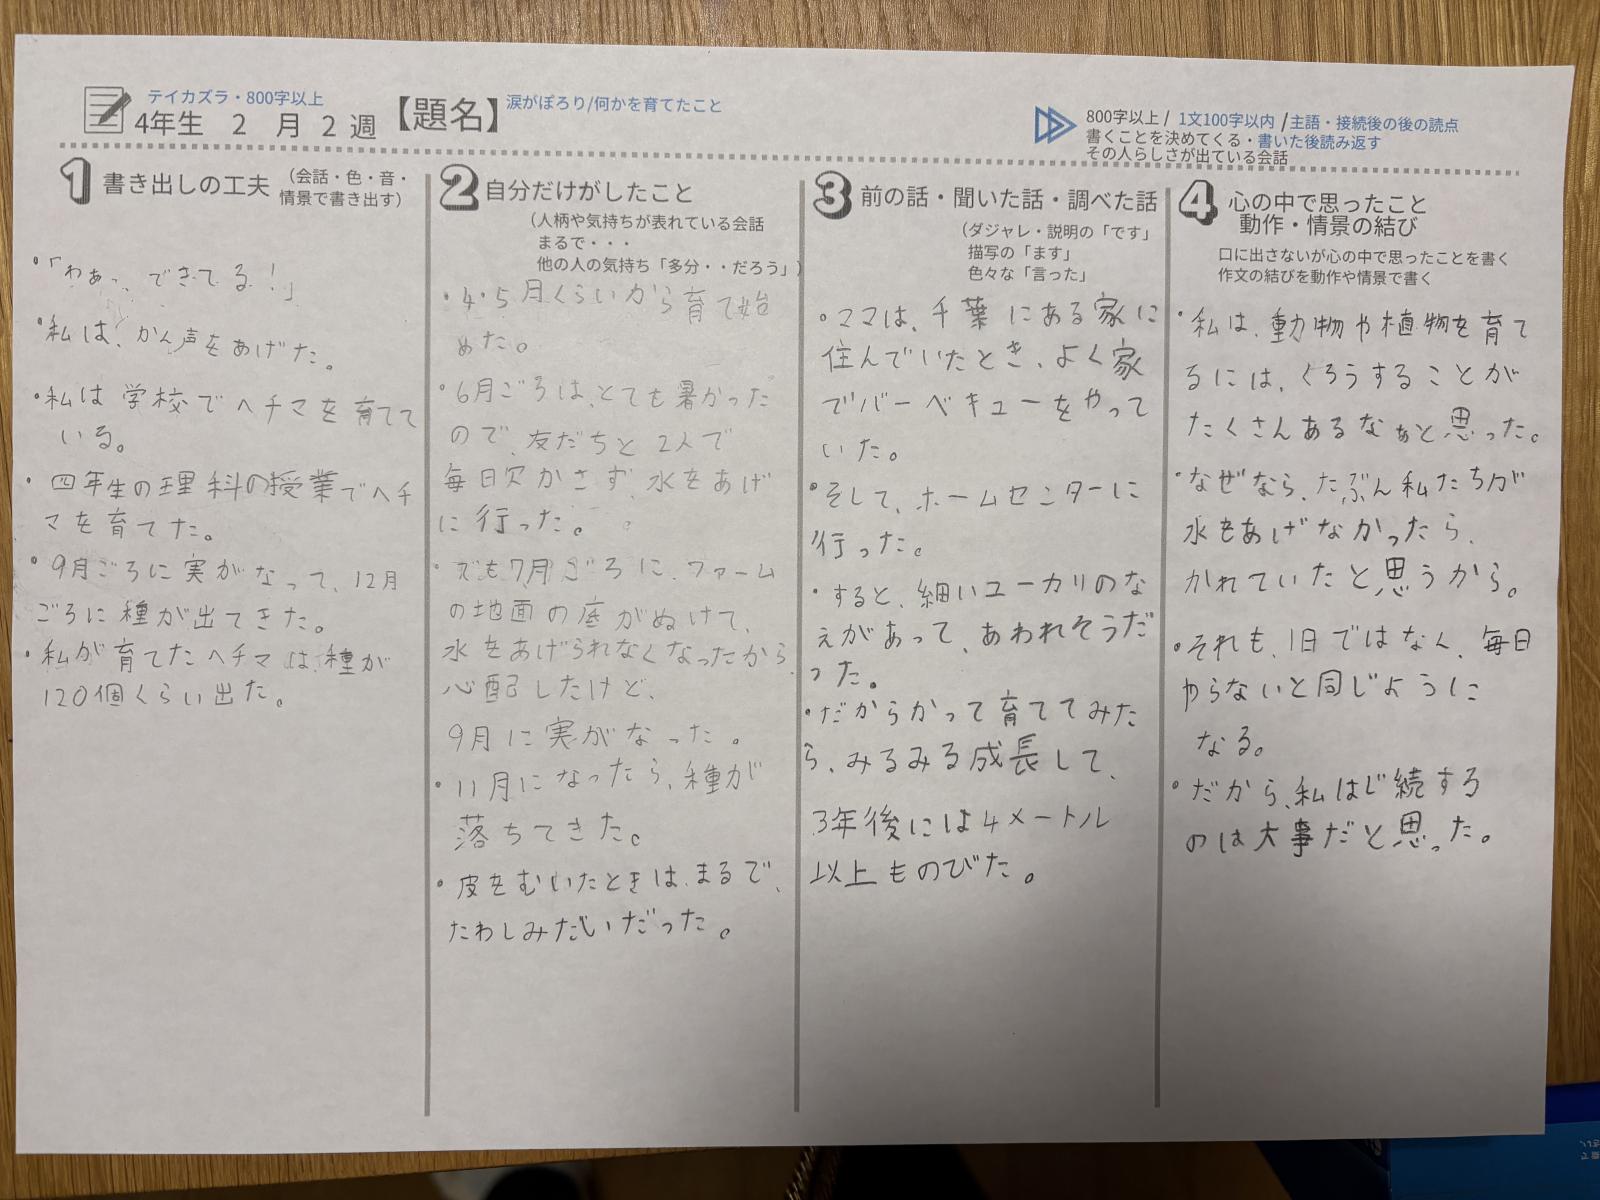 テイカズラ・800字以上
4年生 2 月 2 週
【題名】
涙がぽろり/何かを育てたこと
800字以上/ 1文100字以内 /主語・接続後の後の読点
書くことを決めてくる・書いた後読み返す
その人らしさが出ている会話
1 書き出しの工夫 (会話・色・音・
情景で書き出す)
・「わぁっ、できてる!」
・私は、かん声をあげた。
・私は学校でヘチマを育てて
いる。
・四年生の理科の授業でヘチ
マを育てた。
・9月ごろに実がなって、12月
ごろに種が出てきた。
・私が育てたヘチマは、種が
120個くらい出た。
2 自分だけがしたこと
(人柄や気持ちが表れている会話
まるで・・・
他の人の気持ち「多分・・だろう」)
・4・5月くらいから育て始
めた。
・6月ごろは、とても暑かった
ので、友だちと2人で
毎日欠かさず、水をあげ
に行った。
・でも7月ごろに、ファーム
の地面の底がぬけて、
水をあげられなくなったから
心配したけど、
9月に実がなった。
・11月になったら、種が
落ちてきた。
・皮をむいたときは、まるで、
たわしみたいだった。
3 前の話・聞いた話・調べた話
(ダジャレ・説明の「です」
描写の「ます」
色々な「言った」)
・ママは、千葉にある家に
住んでいたとき、よく家
でバーベキューをやって
いた。
・そして、ホームセンターに
行った。
・すると、細いユーカリのな
えがあって、あわれそうだ
った。
・だからかって育ててみた
ら、みるみる成長して、
3年後には4メートル
以上ものびた。
4 心の中で思ったこと
動作・情景の結び
口に出さないが心の中で思ったことを書く
作文の結びを動作や情景で書く
・私は、動物や植物を育て
るには、くろうすることが
たくさんあるなぁと思った。
・なぜなら、たぶん私たちが
水をあげなかったら、
かれていたと思うから。
・それも、1日ではなく、毎日
やらないと同じように
なる。
・だから、私はじ続する
のは大事だと思った。